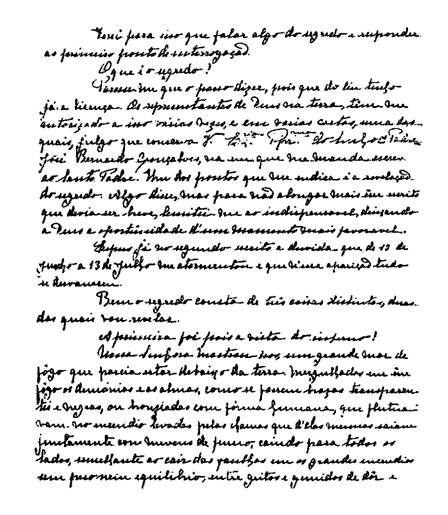 Terei para isso que falar algo do segredo e responder
ao primeiro ponto de interrogação.
O que é o segredo?
Parece-me que o posso dizer, pois que do Céu tenho
já a licença. Os representantes de Deus na terra, têm-me
autorizado a isso várias vezes, e em várias cartas, uma das
quais, julgo que conserva V. Ex.cia Rev.ma do Senhor P.
José Bernardo Gonçalves, na em que me manda escrever
ao Santo Padre. Um dos pontos que me indica é a revelação
do segredo. Algo disse, mas para não alongar mais êsse escrito
que devia ser breve, limitei-me ao indispensável, deixando
a Deus a oportunidade d'um momento mais favorável.
Expus já no segundo escrito a dúvida que de 13 de
Junho a 13 de Julho me atormentou e que n'essa aparição tudo
se desvaneceu.
Bem o segrêdo consta de três coisas distintas, duas
das quais vou revelar.
A primeira foi pois a vista do inferno!
Nossa Senhora mostrou-nos um grande mar de
fôgo que parecia estar debaixo da terra. Mergulhados em êsse
fôgo os demónios e as almas, como se fossem brasas transparen-
tes e negras, ou bronziadas com fórma humana, que flutua-
vam no incêndio levadas pelas chamas que d'elas mesmas saiam
juntamente com nuvens de fumo, caindo para todos os
lados, semelhante ao cair das faulhas em os grandes incendios
sem peso nem equilíbrio, entre gritos e gemidos de dôr e